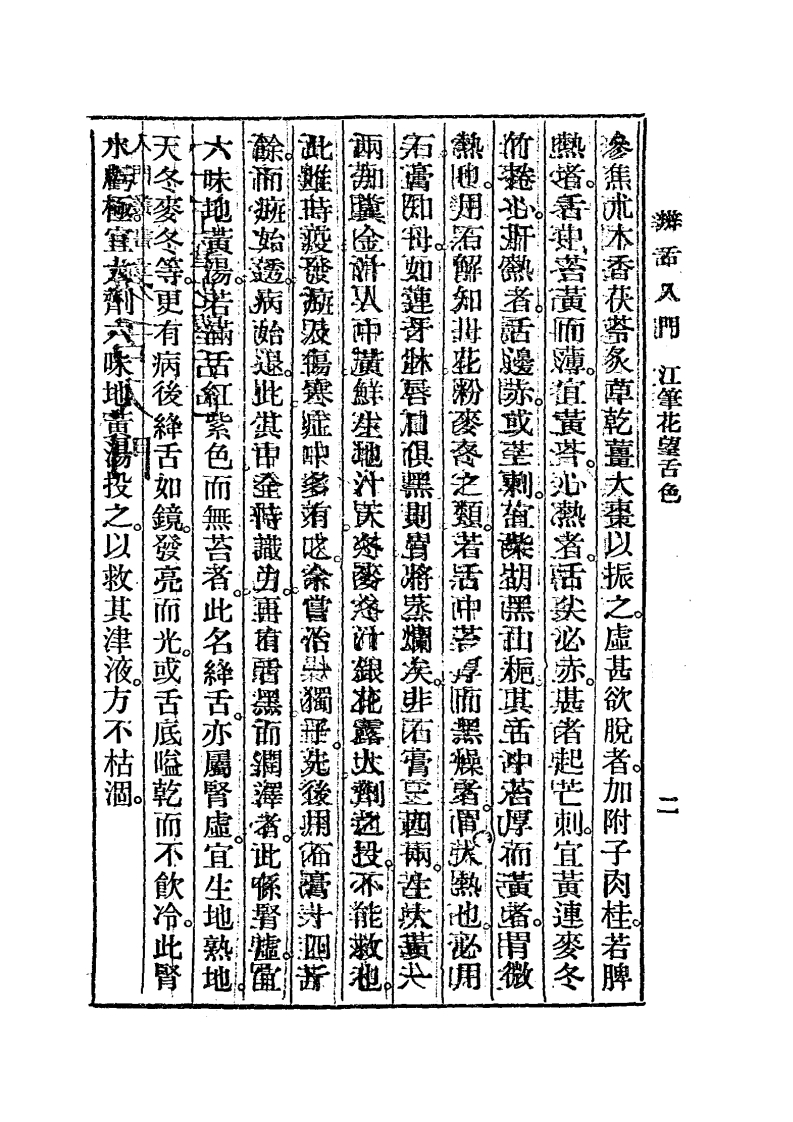 辨舌入門　江筆花望舌色　二
參焦朮木香茯苓炙草乾薑大棗以振之。虛甚欲脫者。加附子肉桂。若脾
熱者。舌中苔黃而薄。宜黃芩。心熱者。舌尖必赤。甚者起芒刺。宜黃連麥冬
竹捲心。肝熱者。舌邊赤。或莖刺。宜柴胡黑山梔。其舌中苔厚而黃者。胃微
熱也。用石斛知母花粉麥冬之類。若舌中苔厚而黑燥者。胃大熱也。必用
石膏知母。如連牙牀唇口俱黑。則胃將蒸爛矣。非石膏三四兩。生大黃一
兩。加糞金汁人中黃鮮生地汁天冬麥冬汁銀花露大劑之投。不能救也。
此雖時疫發癍及傷寒症中多有之。余嘗治一獨子。先後用石膏十四斤
餘。而癍始透。病始退。此其中全恃識力。再有舌黑而潤澤者。此係腎虛。宜
六味地黃湯。若滿舌紅紫色而無苔者。此名絳舌。亦屬腎虛。宜生地熟地
天冬麥冬等。更有病後絳舌如鏡。發亮而光。或舌底嗌乾而不飲冷。此腎
水虧極。宜大劑六味地黃湯投之。以救其津液。方不枯涸。